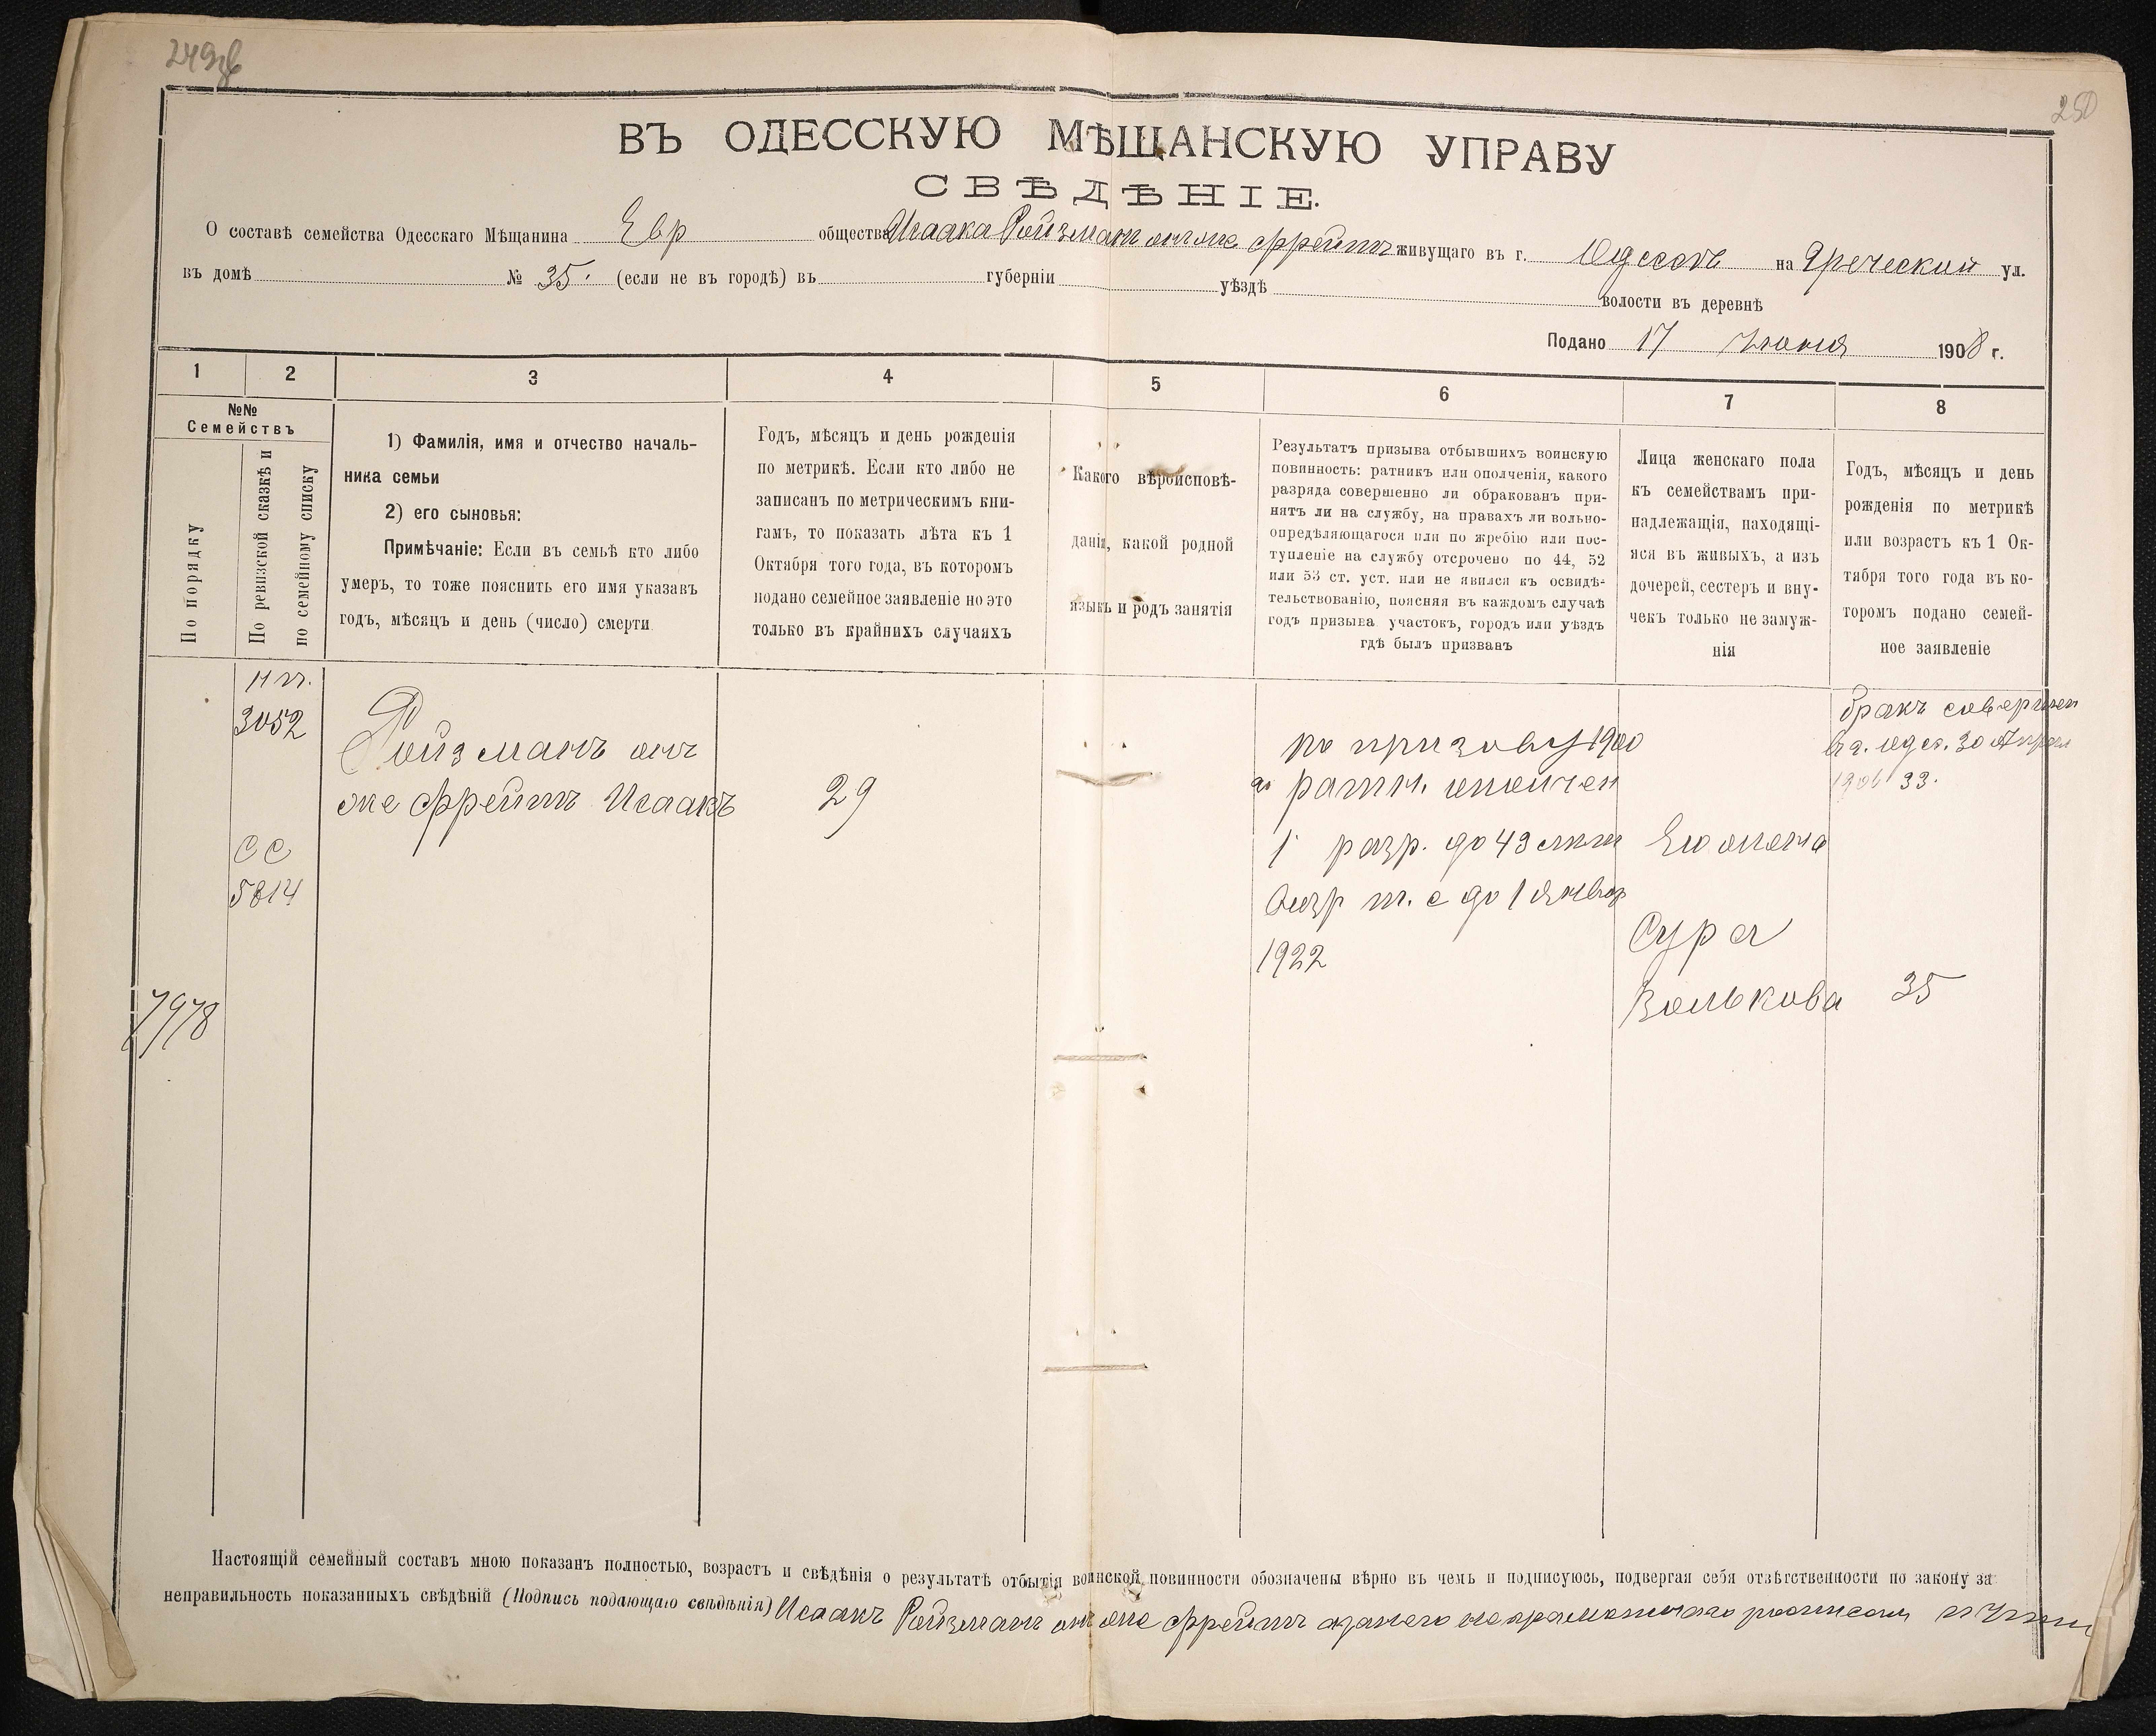 249об
250
ВЪ ОДЕССКУЮ МѢЩАНСКУЮ УПРАВУ
СВѢДѢНІЕ.
О составѣ семейства Одесскаго Мѣщанина Евр общества Исаака Ройзман онъ же Фрейтъ живущаго въ г. Одессѣ на Греческой ул.
въ домѣ № 35. (если не въ городѣ) въ губерніи уѣздѣ волости въ деревнѣ
Подано 17 Іюня 1908 г.
1 2 3 4 5 6 7 8
№№
Семействъ
По порядку
По ревизской сказкѣ и
по семейному списку
1) Фамилія, имя и отчество началь-
ника семьи
2) его сыновья:
Примѣчаніе: Если въ семьѣ кто либо
умеръ, то тоже пояснить его имя указавъ
годъ, мѣсяцъ и день (число) смерти
Годъ, мѣсяцъ и день рожденія
по метрикѣ. Если кто либо не
записанъ по метрическимъ кни-
гамъ, то показать лѣта къ 1
Октября того года, въ которомъ
подано семейное заявленіе но это
только въ крайнихъ случаяхъ
Какого вѣроисповѣ-
данія, какой родной
языкъ и родъ занятія
Результатъ призыва отбывшихъ воинскую
повинность: ратникъ или ополченія, какого
разряда совершенно ли обракованъ при-
нятъ ли на службу, на правахъ ли вольно-
опредѣляющагося или по жребію или пос-
тупленіе на службу отсрочено по 44, 52
или 53 ст. уст. или не явился къ освидѣ-
тельствованію, поясняя въ каждомъ случаѣ
годъ призыва участокъ, городъ или уѣздъ
гдѣ былъ призванъ
Лица женскаго пола
къ семействамъ при-
надлежащія, находящі-
яся въ живыхъ, а изъ
дочерей, сестеръ и вну-
чекъ только не замуж-
нія
Годъ, мѣсяцъ и день
рожденія по метрикѣ
или возрастъ къ 1 Ок-
тября того года въ ко-
торомъ подано семей-
ное заявленіе
3052
СС
5814
7978
Ройзманъ онъ
же Фрейтъ Исаакъ
29
по призову 1900
г. ратн. ополчен
1 разр. до 43 лѣт
возр т. е до 1 Январ
1922
Его жена
Сура
Волькова
35
бракъ совершен
въ г. Одес. 30 Апрел
33.
Настоящій семейный составъ мною показанъ полностью, возрастъ и свѣдѣнія о результатѣ отбытія воинской повинности обозначены вѣрно въ чемъ и подписуюсь, подвергая себя отвѣтственности по закону за
неправильность показанныхъ свѣдѣній (Подпись подающаго свѣдѣнія) Исаакъ Ройзманъ онъ же Фрейтъ